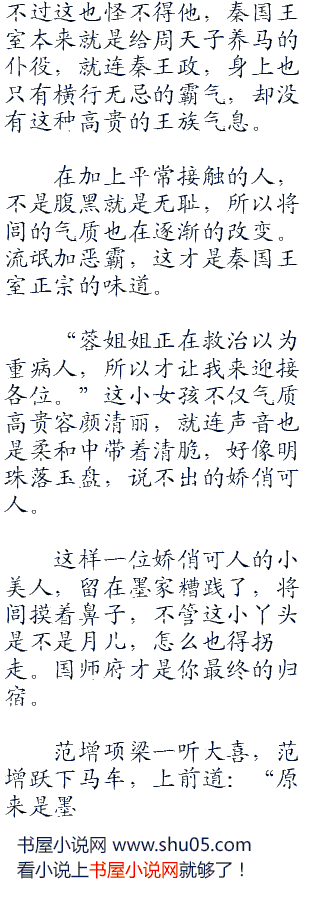 不过这也怪不得他，秦国王
室本来就是给周天子养马的
仆役，就连秦王政，身上也
只有横行无忌的霸气，却没
有这种高贵的王族气息。
在加上平常接触的人，
不是腹黑就是无耻，所以将
闾的气质也在逐渐的改变。
流氓加恶霸，这才是秦国王
室正宗的味道。
“蓉姐姐正在救治以为
重病人，所以才让我来迎接
各位。”这小女孩不仅气质
高贵容颜清丽，就连声音也
是柔和中带着清脆，好像明
珠落玉盘，说不出的娇俏可
人。
这样一位娇俏可人的小
美人，留在墨家糟践了，将
闾摸着鼻子，不管这小丫头
是不是月儿，怎么也得拐
走。国师府才是你最终的归
宿。
范增项梁一听大喜，范
增跃下马车，上前道：“原
来是墨
书屋小说网 www.shu05.com
看小说上书屋小说网就够了！